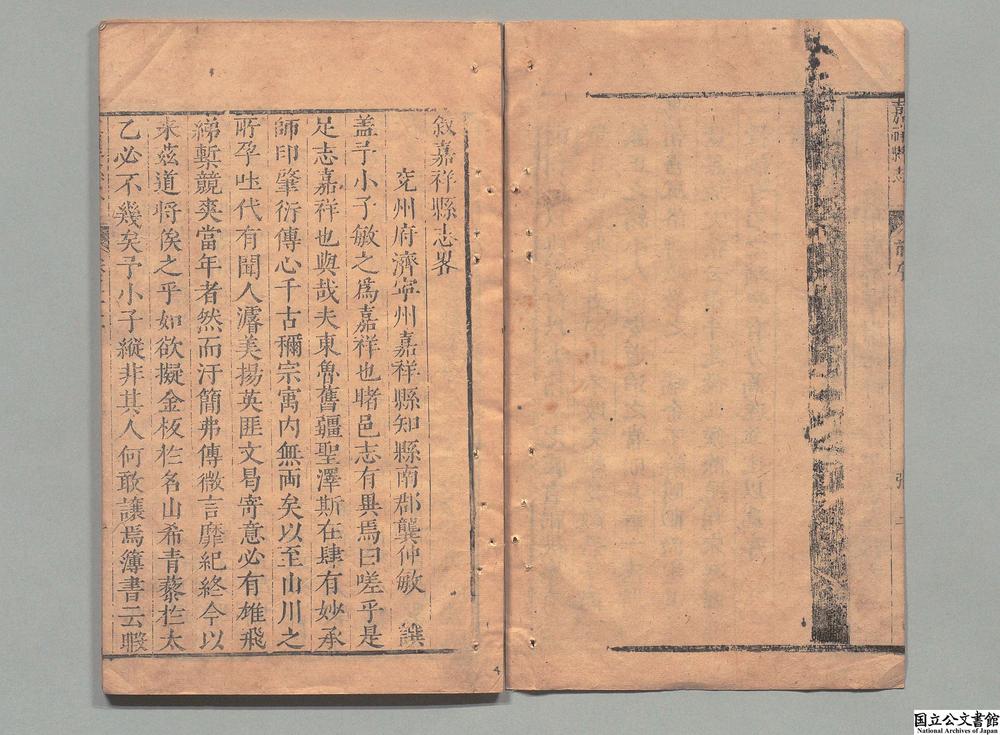 嘉祥縣志
敘嘉祥縣志畧
兖州府濟寜州嘉祥縣知縣南郡龔仲敏 譔
盖予小子敏之爲嘉祥也睹邑志有異焉曰嗟乎是
足志嘉祥也與哉夫東魯舊疆聖澤斯在肆有妙承
師印肇衍傳心千古禰宗寓内無兩矣以至山川之
所孕吐代有聞人濬美揚英匪文曷寄意必有雄飛
綈槧競爽當年者然而汗簡弗傳微言靡紀終今以
来茲道將俟之乎如欲擬金板扵名山希青藜扵太
乙必不幾矣予小子縱非其人何敢讓焉簿書云暇
国立公文書館
National Archives of Japan